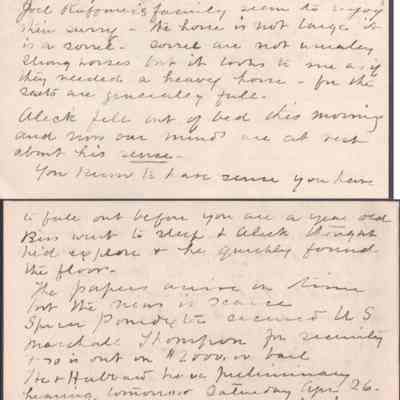 Joel family seem to enjoy
their surry – The horse is not large it
is a sorrel – sorrel are not
strong horses but it looks to me as if
they needed a heavy horse – for the
seats are full –
Aleck fell out of bed this morning
and now our minds are at rest
about his sense –
You know to have sense you have
to fall out before you are a year old
Bess went to sleep & Aleck thought
he'd explore & he quickly found
the floor –
The papers arrive on time
but the news is scarce
Spicer secured U S
Marshall Thompson for security
& so is out on $2000.00 bail
He & Hubbard have preliminary
hearing tomorrow Saturday Apr 26 –